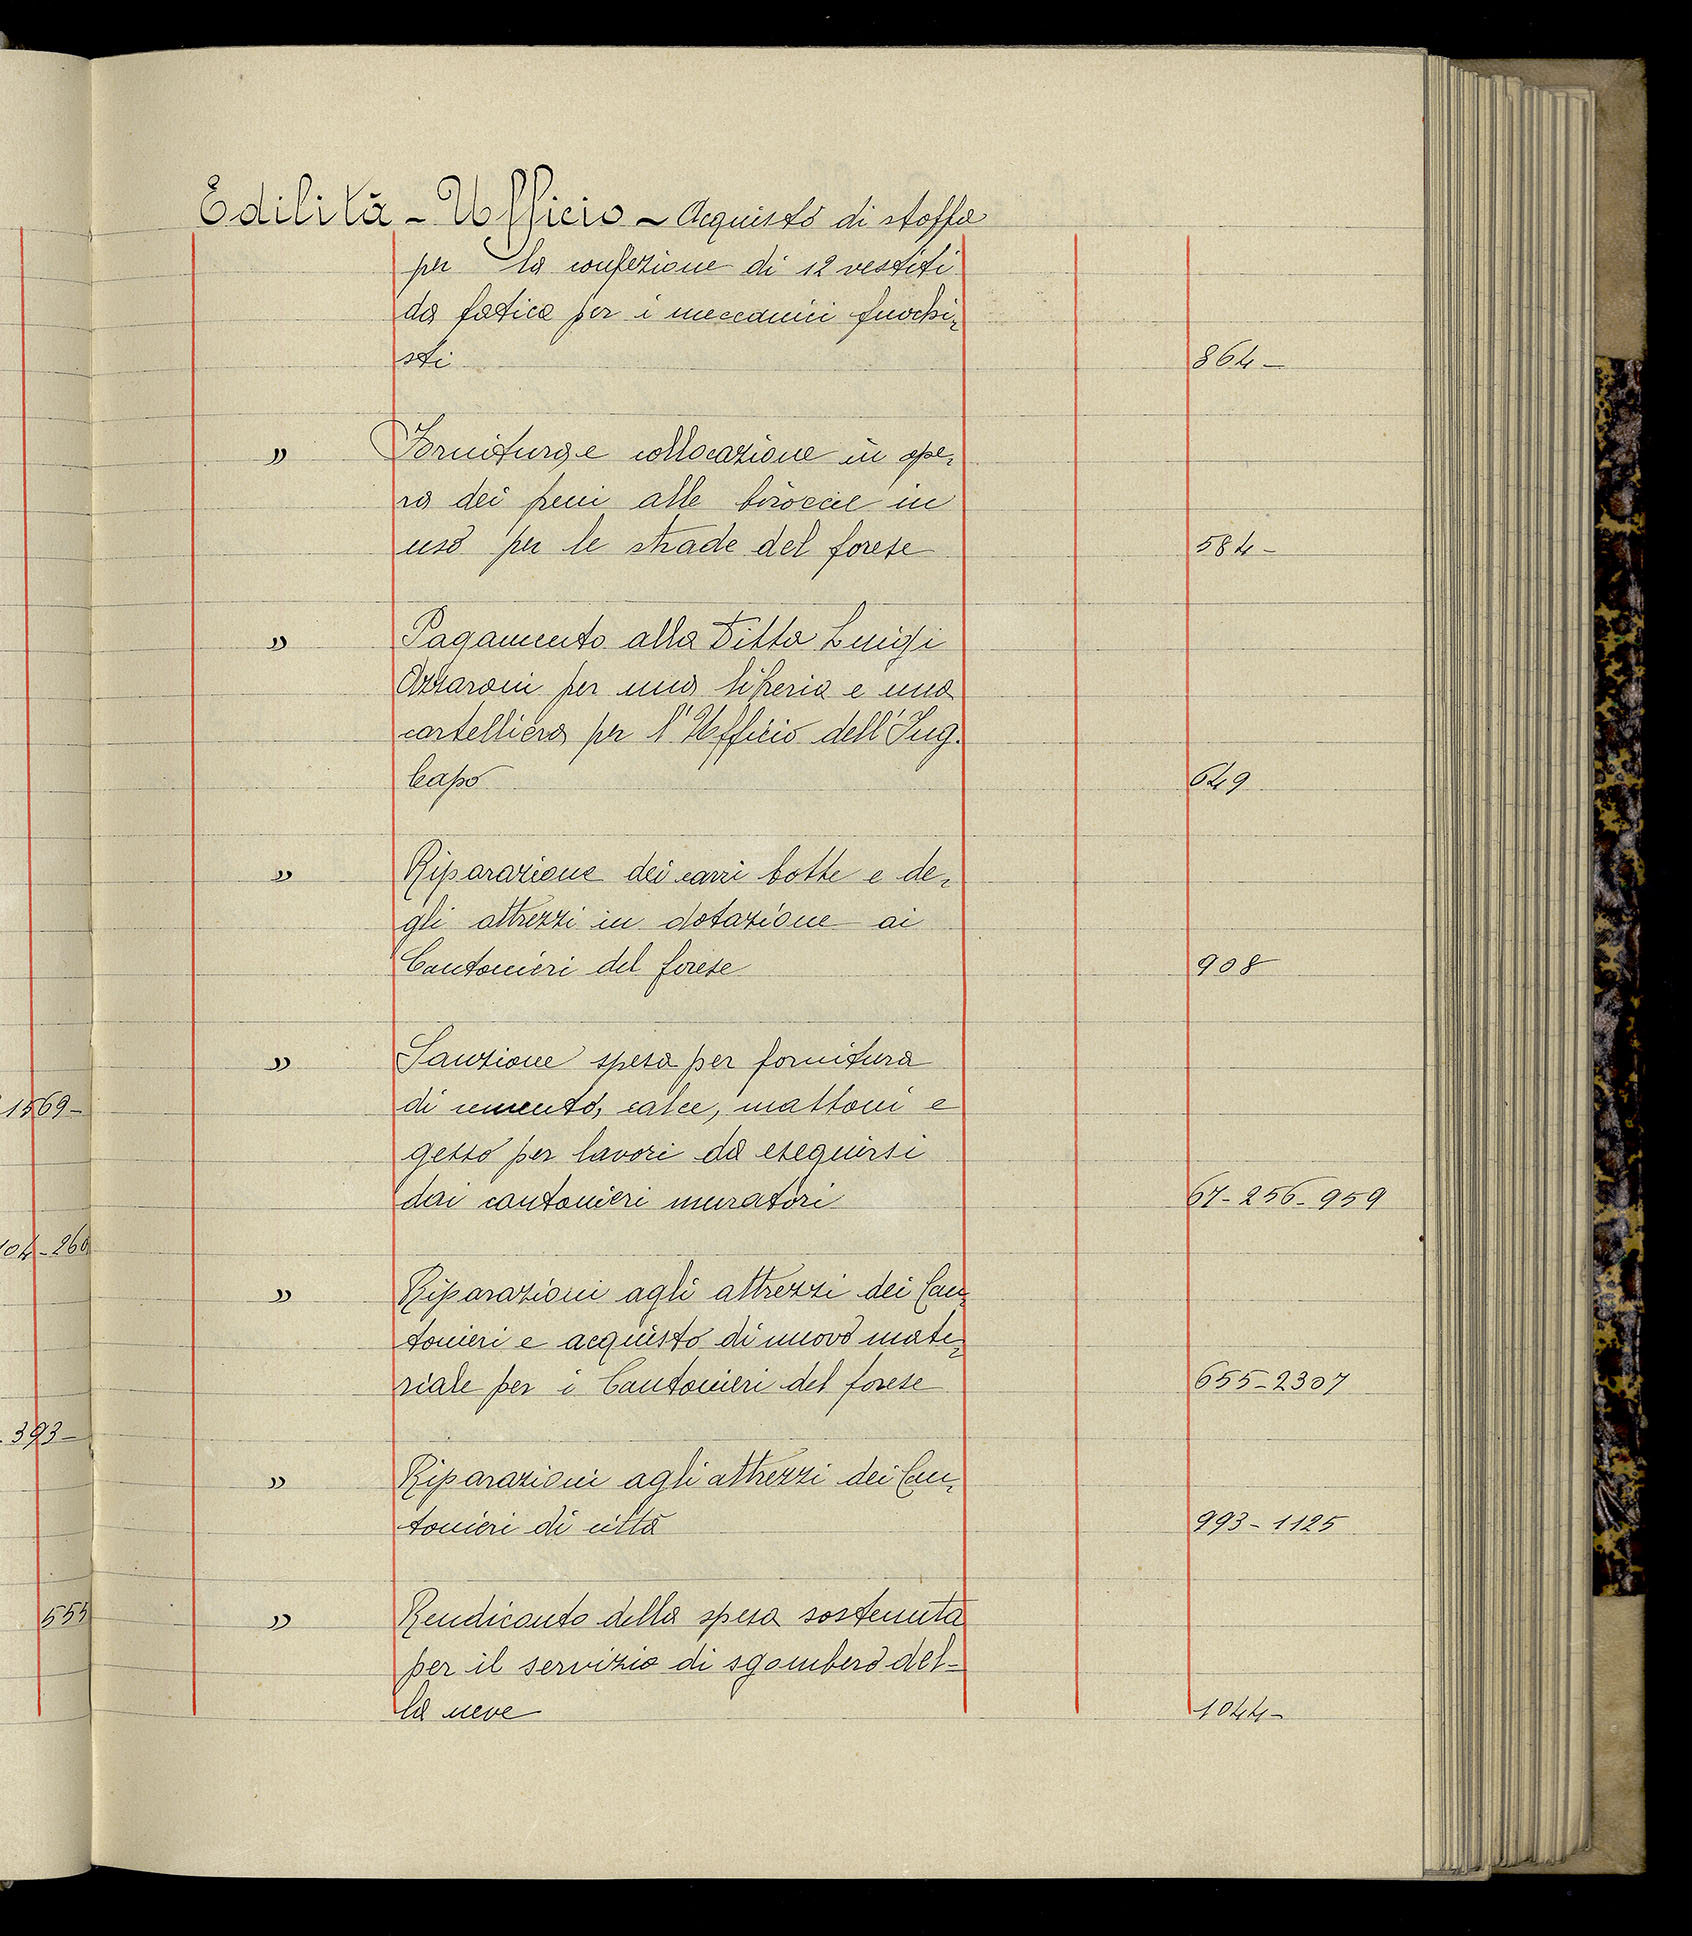 Edilità - Ufficio - Acquisto di stoffa
per la confezione di 12 vestiti
da fatica per i meccanici fuochi-
sti 864 -
" Fornitura e collocazione in ope-
ra dei freni alle biroccie in
uso per le strade del forese 584 -
" Pagamento alla Ditta Luigi
Azzaroni per una libreria e una
cartelliera per l'Ufficio dell'Ing.
Capo 649
" Riparazione dei carri botte e de-
gli attrezzi in dotazione ai
Cantonieri del forese 908
" Sanzione spesa per fornitura
di cemento, calce, mattoni e
gesso per lavori da eseguirsi
dai cantonieri muratori 67 - 256 - 959
" Riparazioni agli attrezzi dei Can-
tonieri e acquisto di nuovo mate-
riale per i Cantonieri del forese 655 - 2307
" Riparazioni agli attrezzi dei Can-
tonieri di città 993 - 1125
" Rendiconto della spesa sostenuta
per il servizio di sgombero del-
la neve 1044 -
1569 -
104 - 260
393 -